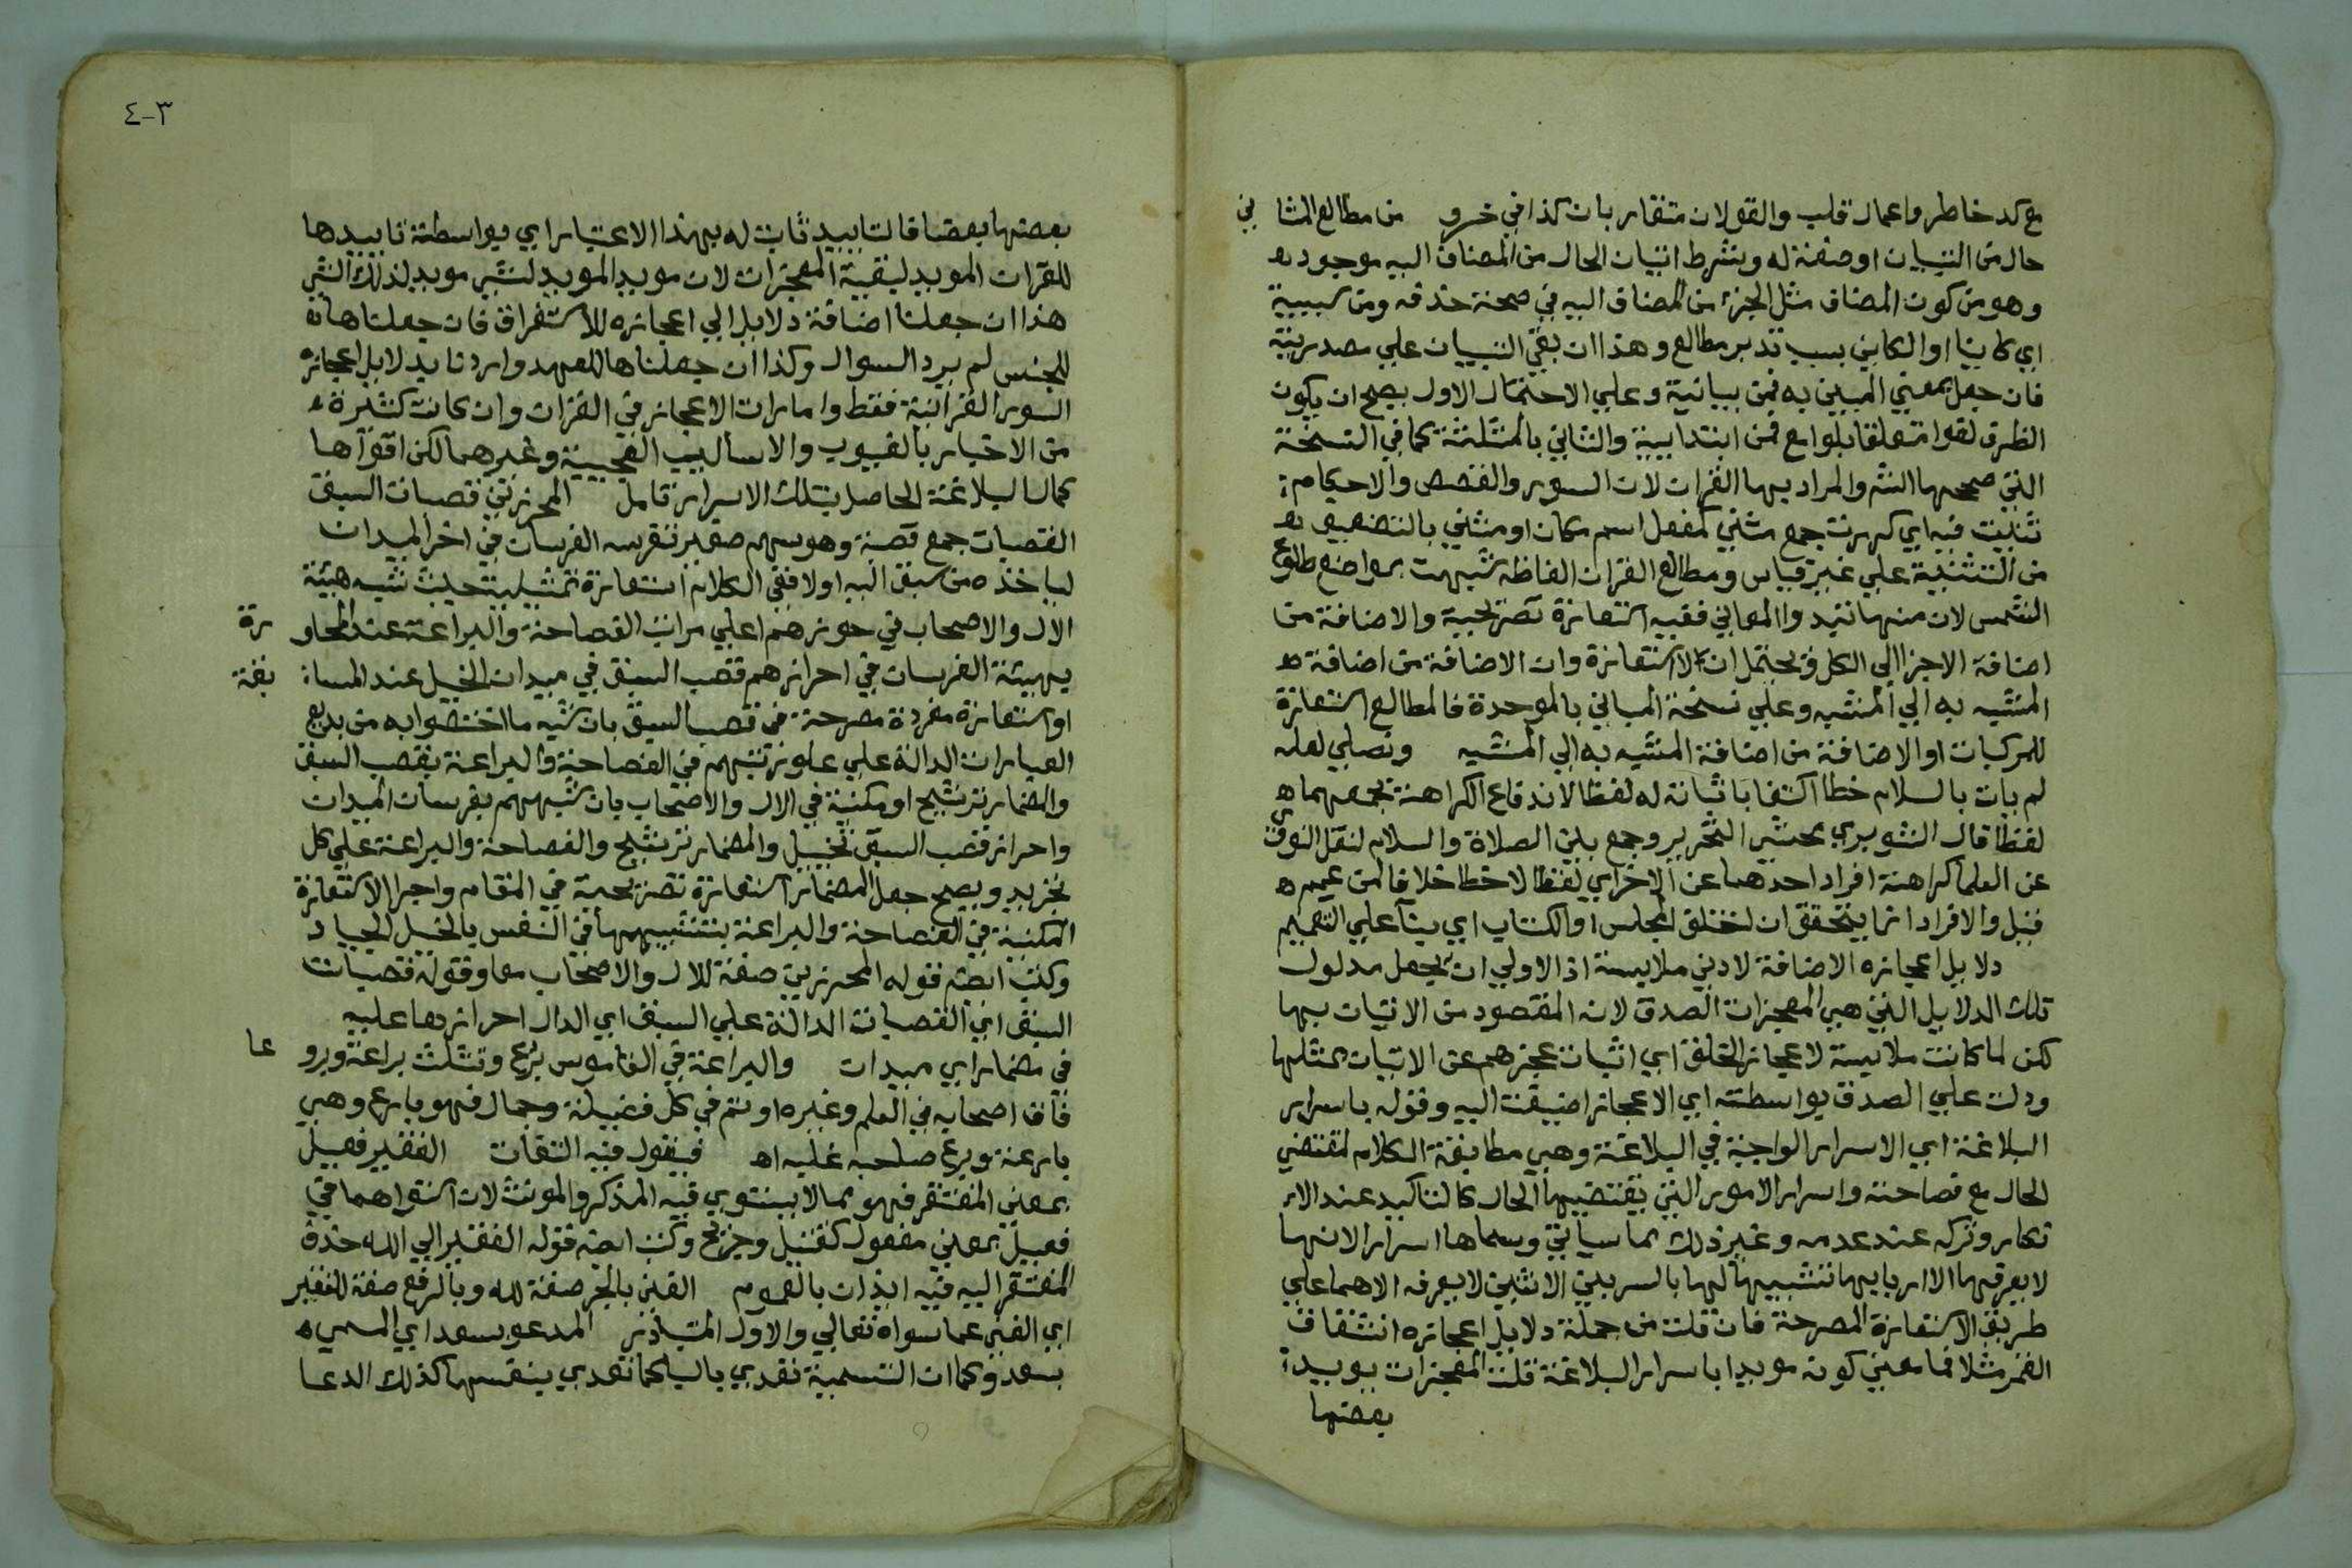 مع كد خاطر واعمال قلب والقولان متقاربان كذا في خرو من مطالع المثا ني
حال من التبيان او صفة له وبشرط اتيان الحال من المضاف اليه موجود
وهو من كون المضاف مثل الجزء من المضاف اليه في صحة حذفه ومن سببية
اي كاينا او الكاين بسبب تدبر مطالع وهذا ان بقي التبيان علي مصدريته
فان جعل بمعني المبين به فمن بيانية وعلي الاحتمال الاول يصح ان يكون
الظرف لغوا متعلقا بلوامع فمن ابتدايية والثاني بالمثلثة كما في النسخة
التي صححها الش والمراد بها القران لان السور والقصص والاحكام
ثنيت فيه اي كررت جمع مثني كمفعل اسم مكان او مثني بالتضعيف
من التثنية علي غير قياس ومطالع القران الفاظه شبهت بمواضع طلوع
الشمس لان منها تبدوا المعاني ففيه استعارة تصريحية والاضافة من
اضافة الاجزا الي الكل ويحتمل ان لا استعارة وان الاضافة من اضافة
المشبه به الي المشبه وعلي نسخة المباني بالموحدة فالمطالع استعارة
للمركبات او الاضافة من اضافة المشبه به الي المشبه ونصلي لعله
لم يات بالسلام خطا اكتفا باتيانه له لفظا لاندفاع الكراهة بجمعهما
لفظا قال الشوبري محشي التحرير وجمع بين الصلاة والسلام لنقل النووي
عن العلما كراهة افراد احدهما عن الاخر اي لفظا لا خطا خلافا لمن عمم
قيل والافراد انما يتحقق ان اختلف المجلس او الكتاب اي بنا علي التعميم
دلايل اعجازه الاضافة لادني ملابسة اذ الاولي ان يجعل مدلول
تلك الدلايل التي هي المعجزات الصدق لانه المقصود من الاتيان بها
لكن لما كانت ملابسة لاعجاز الخلق اي اثبات عجزهم عن الاتيان بمثلها
ودلت علي الصدق بواسطته اي الاعجاز اضيفت اليه وقوله باسرار
البلاغة اي الاسرار الواجبة في البلاغة وهي مطابقة الكلام لمقتضي
الحال مع فصاحته واسرار الامور التي يقتضيها الحال كالتاكيد عند الا
نكار وتركه عند عدمه وغير ذلك مما سياتي وسماها اسرارا لانها
لا يعرفها الا اربابها تشبيها لها بالسر بين الاثنين لا يعرفه الا هما علي
طريق الاستعارة المصرحة فان قلت من جملة دلايل اعجازه انشقاق
القمر مثلا فما معني كونه مويدا باسرار البلاغة قلت المعجزات يويد
بعضها
٣-٤
بعضها بعضا فالتاييد ثابت له بهذا الاعتبار اي بواسطة تاييدها
للقران المويد لبقية المعجزات لان مويد المويد لشي مويد لذلك الشي
هذا ان جعلنا اضافة دلايل الي اعجازه للاستغراق فان جعلناها
للجنس لم يرد السوال وكذا ان جعلناها للعهد واردنا بدلايل اعجازه
السور القرانية فقط وامارات الاعجاز في القران وان كانت كثيرة
من الاخبار بالغيوب والاساليب العجيبة وغيرهما لكن اقواها
كمال البلاغة الحاصل بتلك الاسرار تامل المحرزين قصبات السبق
القصبات جمع قصبة وهو سهم صغير تغرسه الفرسان في اخر الميدان
لياخذه من سبق اليه اولا ففي الكلام استعارة تمثيلية حيث شبه هيئة
الال والاصحاب في حوزهم اعلي مراتب الفصاحة والبراعة عند المحاو رة
بهيئة الفرسان في احرازهم قصب السبق في ميدان الخيل عند المسا بقة
او استعارة مفردة مصرحة في قصب السبق بان شبه ما اختصوا به من بديع
العبارات الدالة علي علو رتبتهم في الفصاحة والبراعة بقصب السبق
والمضمار ترشيح او مكنية في الال والاصحاب بان شبههم بفرسان الميدان
واحراز قصب السبق تخييل والمضمار ترشيح والفصاحة والبراعة علي كل
تجريد ويصح جعل المضمار استعارة تصريحية في المقام واجرا الاستعارة
المكنية في الفصاحة والبراعة بتشبيهها في النفس بالخيل الجياد
وكتب ايضا قوله المحرزين صفة للال والاصحاب معا وقوله قصبات
السبق اي القصبات الدالة علي السبق اي الدال احرازها عليه
في مضمار اي ميدان والبراعة في القاموس برع وتثلث براعة وبرو عا
فاق اصحابه في العلم وغيره او تم في كل فضيلة وجمال فهو بارع وهي
بارعة وبرع صاحبه غلبه اه فيقول فيه التفات الفقير فعيل
بمعني المفتقر فهو مما لا يستوي فيه المذكر والمونث لان استواهما في
فعيل بمعني مفعول كقتيل وجريح وكتب ايضا قوله الفقير الي الله حذف
المفتقر اليه فيه ايذان بالعموم الغني بالجر صفة لله وبالرفع صفة للفقير
اي الغني عما سواه تعالي والاول المتبادر المدعو بسعد اي المسمي
بسعد وكما ان التسمية تتعدي بالبا كما تتعدي بنفسها كذلك الدعا